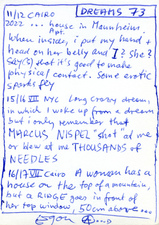 11/12 CAIRO DREAMS 73
2022 ... house in Mannheim.
Apt.
When inside, i put my hand +
head on her belly and I & she?
Say(s) that it's good to make
physical contact. Some erotic
sparks fly
15/16 VII NYC Long Crazy dream,
in which I woke up from a dream
but i only remember that
MARCUS NISPEL "shot" at me
or blew at me THOUSANDS of
NEEDLES
16/17 VII Cairo A woman has a
house on the top of a mountain,
but a RIDGE goes in front of
her top window, 50cm above...